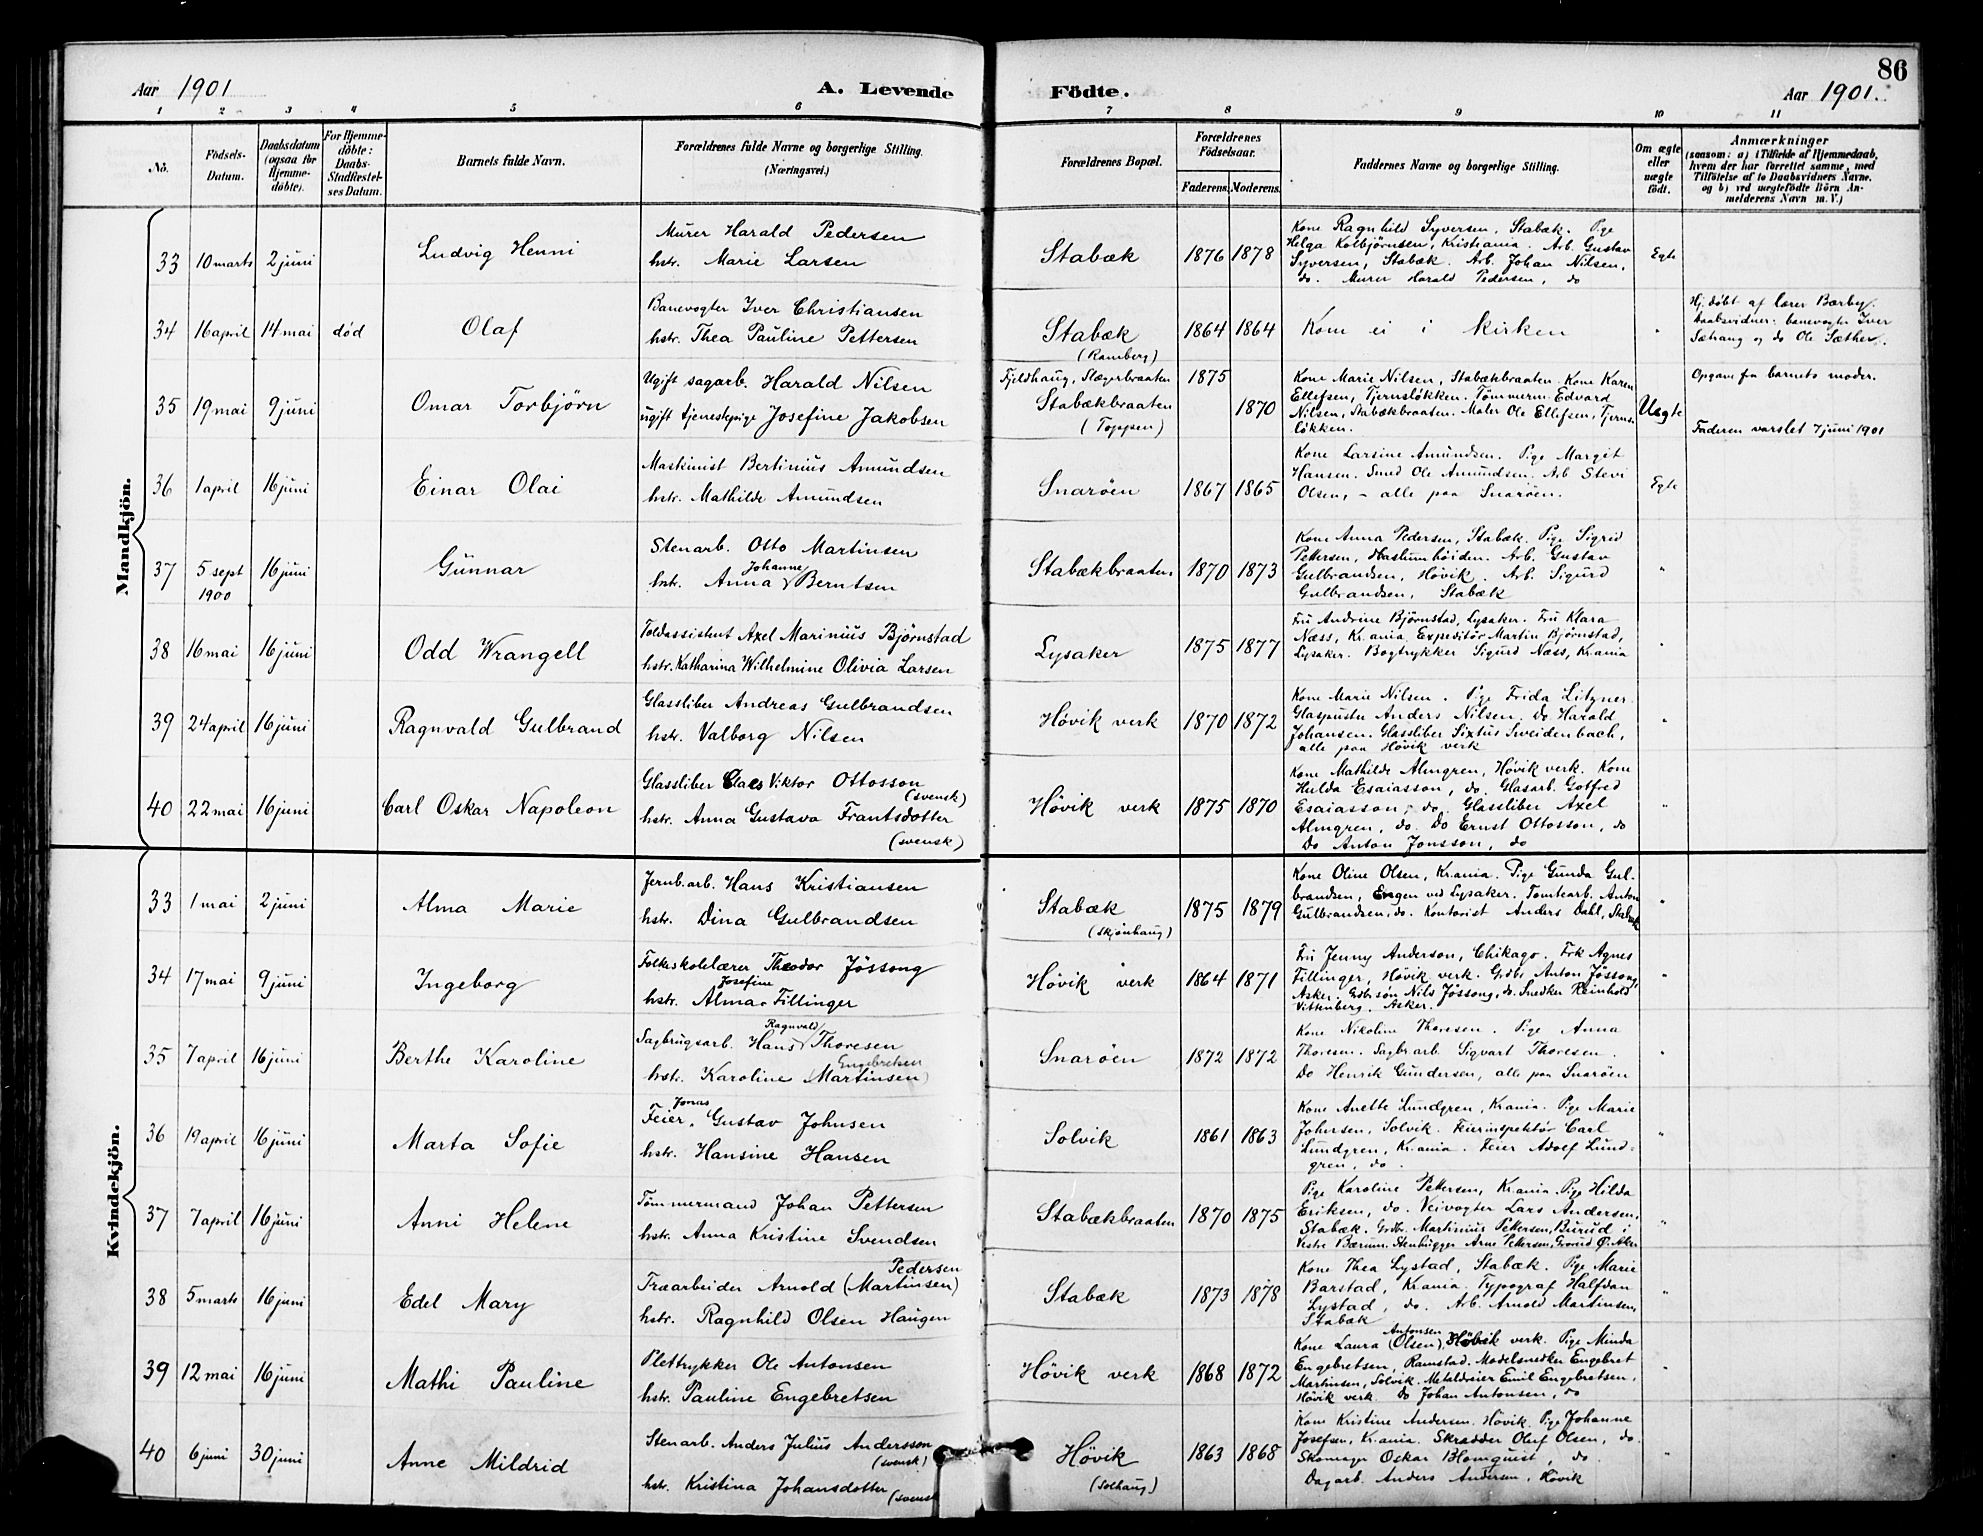 86
Aar 1901
A. Levende Födte.
Aar 1901.
1 2 3 4 5 6 7 8 9 10 11
No.
Födsels-Datum.
Daabsdatum (ogsaa for Hjemme-döbte).
For Hjemme-döbte: Daabs-Stadfæstel-ses Datum.
Barnets fulde Navn.
Forældrenes fulde Navne og borgerlige Stilling.
(Næringsvei.)
Forældrenes Bopæl.
Forældrenes Födselsaar.
Faderens. Moderens.
Faddernes Navne og borgerlige Stilling.
Om ægte eller uægte födt.
Anmærkninger
(saasom: a) i Tilfælde af Hjemmedaab,
hvem der har forrettet samme, med
Tilföielse af to Daabsvidners Navne,
og b) ved uægtefödte Börn An-
melderens Navn m. V.)
Mandkjön.
33 10 marts 2 juni Ludvig Henni
Murer Harald Pedersen
hstr. Marie Larsen
Stabæk 1876 1878
Kone Ragnhild Syversen, Stabæk. Pige
Helga Kolbjørnsen, Kristiania. Arb. Gustav
Syversen, Stabæk. Arb. Johan Nilsen,
do. Murer Harald Pedersen, do
Egte
34 16 april 14 mai død Olaf
Banevogter Iver Christiansen
hstr. Thea Pauline Pettersen
Stabæk
(Ramberg)
1864 1864 Kom ei i kirken "
Hj. døbt af lærer Bærby.
Daabsvidner: banevogter Iver
Sætrang og do Ole Sæther.
35 19 mai 9 juni Omar Torbjørn
Ugift sagarb. Harald Nilsen
ugift tjenestepige Josefine Jakobsen
Fjeldhaug, Slæperbraaten 1875
Stabækbraaten 1870
(Toppen)
Kone Marie Nilsen, Stabækbraaten. Kone Karen
Ellefsen, Tjernsløkken. Tømmerm. Edvard
Nilsen, Stabækbraaten. Maler Ole Ellefsen, Tjerns-
løkken.
Uægte
Opgave fra barnets moder.
Faderen varslet 7 juni 1901
36 1 april 16 juni Einar Olai
Maskinist Bertinius Amundsen
hstr. Mathilde Amundsen
Snarøen 1867 1865
Kone Larsine Amundsen. Pige Margit
Hansen. Smed Ole Amundsen. Arb Stevi
Olsen, - alle paa Snarøen.
Egte
37 5 sept 1900 16 juni Gunnar
Stenarb. Otto Martinsen
hstr. Anna Johanne Berntsen
Stabækbraaten 1870 1873
Kone Anna Pedersen, Stabæk. Pige Sigrid
Pettersen, Haslumhøiden. Arb. Gustav
Gulbrandsen, Høvik. Arb. Sigurd
Gulbrandsen, Stabæk
"
38 16 mai 16 juni Odd Wrangell
Toldassistent Axel Marinius Bjørnstad
hstr. Katharina Wilhelmine Olivia Larsen
Lysaker 1875 1877
Fru Andrine Bjørnstad, Lysaker. Fru Klara
Næss, Kr.ania. Expeditør Martin Bjørnstad,
Lysaker. Bogtrykker Sigurd Næss, Kr.ania
"
39 24 april 16 juni Ragnvald Gulbrand
Glassliber Andreas Gulbrandsen
hstr. Valborg Nilsen
Høvik verk 1870 1872
Kone Marie Nilsen. Pige Frida Litzner.
Glaspuster Anders Nilsen. do Harald
Johansen. Glassliber Sixtus Sweidenbach,
alle paa Høvik verk
"
40 22 mai 16 juni Carl Oskar Napoleon
Glassliber Claes Viktor Ottosson
(svensk)
hstr. Anna Gustava Frantsdotter
(svensk)
Høvik verk 1875 1870
Kone Mathilde Almgren, Høvik verk. Kone
Hulda Esaiasson, do. Glasarb. Gotfred
Esaiasson, do. Glassliber Axel
Almgren, do. Do Ernst Ottosson, do
Do Anton Jonsson, do
"
Kvindekjön.
33 1 mai 2 juni Alma Marie
Jernb.arb. Hans Kristiansen
hstr. Dina Gulbrandsen
Stabæk
(Skjønhaug)
1875 1879
Kone Oline Olsen, Kr.ania. Pige Gunda Gul-
brandsen, Engen ved Lysaker. Tomtearb. Anton
Gulbrandsen, do. Kontorist Anders Dahl, Stabæk
"
34 17 mai 9 juni Ingeborg
Folkeskolelærer Theodor Jøssong
hstr. Alma Josefine Fillinger
Høvik verk 1864 1871
Fru Jenny Anderson, Chikago. Frk Agnes
Fillinger, Høvik verk. Grdbr Anton Jøssong,
Asker. Grdbrsøn Nils Jøssong, do. Snedker Reinhold
Vittenberg, Asker.
"
35 7 april 16 juni Berthe Karoline
Sagbrugsarb. Hans Ragnvald Thoresen
Engebretsen
hstr. Karoline (Martinsen)
Snarøen 1872 1872
Kone Nikoline Thoresen. Pige Anna
Thoresen. Sagbr.arb. Sigvart Thoresen.
Do Henrik Gundersen, alle paa Snarøen
"
36 19 april 16 juni Marta Sofie
Feier, Jonas Gustav Johnsen
hstr. Hansine Hansen
Solvik 1861 1863
Kone Anette Lundgren, Kr.ania. Pige Marie
Johnsen, Solvik. Feierinspektør Carl
Lundgren, Kr.ania. Feier Adolf Lund-
gren, do.
"
37 7 april 16 juni Anni Helene
Tømmermand Johan Pettersen
hstr. Anna Kristine Svendsen
Stabækbraaten 1870 1875
Pige Karoline Pettersen, Kr.ania. Pige Hilda
Eriksen, do. Veivogter Lars Andersen,
Stabæk. Grdbr. Martinius Pettersen, Burud i
Vestre Bærum. Stenhugger Arne Pettersen, Grorud Ø. Aker
"
38 5 marts 16 juni Edel Mary
Pedersen
Træarbeider Arnold (Martinsen)
hstr. Ragnhild Olsen Haugen
Stabæk 1873 1878
Kone Thea Lystad, Stabæk. Pige Marie
Barstad, Kr.ania. Typograf Halfdan
Lystad, do. Arb. Arnold Martinsen,
Stabæk
"
39 12 mai 16 juni Mathi Pauline
Pletttrykker Ole Antonsen
hstr. Pauline Engebretsen
Høvik verk 1868 1872
Antonsen
Kone Laura (Olsen), Høvik verk. Pige Minda
Engebretsen, Ramstad. Modelsnedker Engebret
Martinsen, Solvik. Metaldreier Emil Engebretsen,
Høvik verk. Do Johan Antonsen, do
"
40 6 juni 30 juni Anne Mildrid
Stenarb. Anders Julius Andersson
(svensk)
hstr. Kristina Johansdotter (svensk
Høvik
(Solhaug)
1863 1868
Kone Kristine Andersen. Høvik. Pige Johanne
Josefsen, Kr.ania. Skrædder Oluf Olsen, do.
Skomager Oskar Blomquist, do.
Dagarb. Anders Andersen, Høvik
"